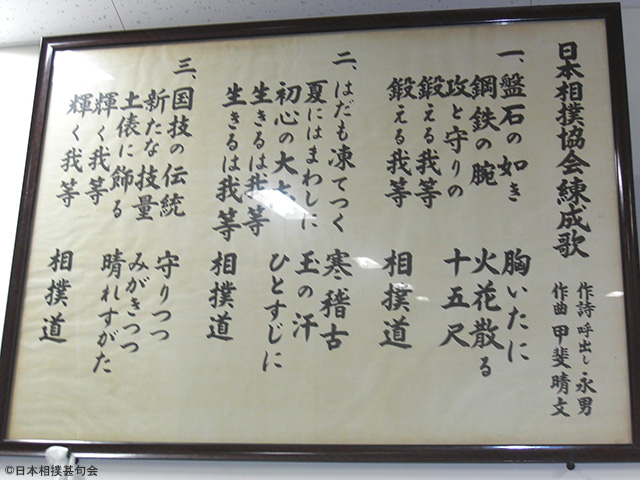 日本相撲協会錬成歌
作詩 呼出し 永男
作曲 甲斐晴文
一、盤石の如き 胸いたに
鋼鉄の腕 火花散る
攻と守りの 十五尺
鍛える我等
鍛える我等 相撲道
二、はだも凍てつく 寒稽古
夏にはまわしに 玉の汗
初心の大 ひとすじに
生きるは我等
生きるは我等 相撲道
三、国技の伝統 守りつつ
新たな技量 みがきつつ
土俵に飾る 晴れすがた
輝く我等
輝く我等 相撲道
©日本相撲甚句会